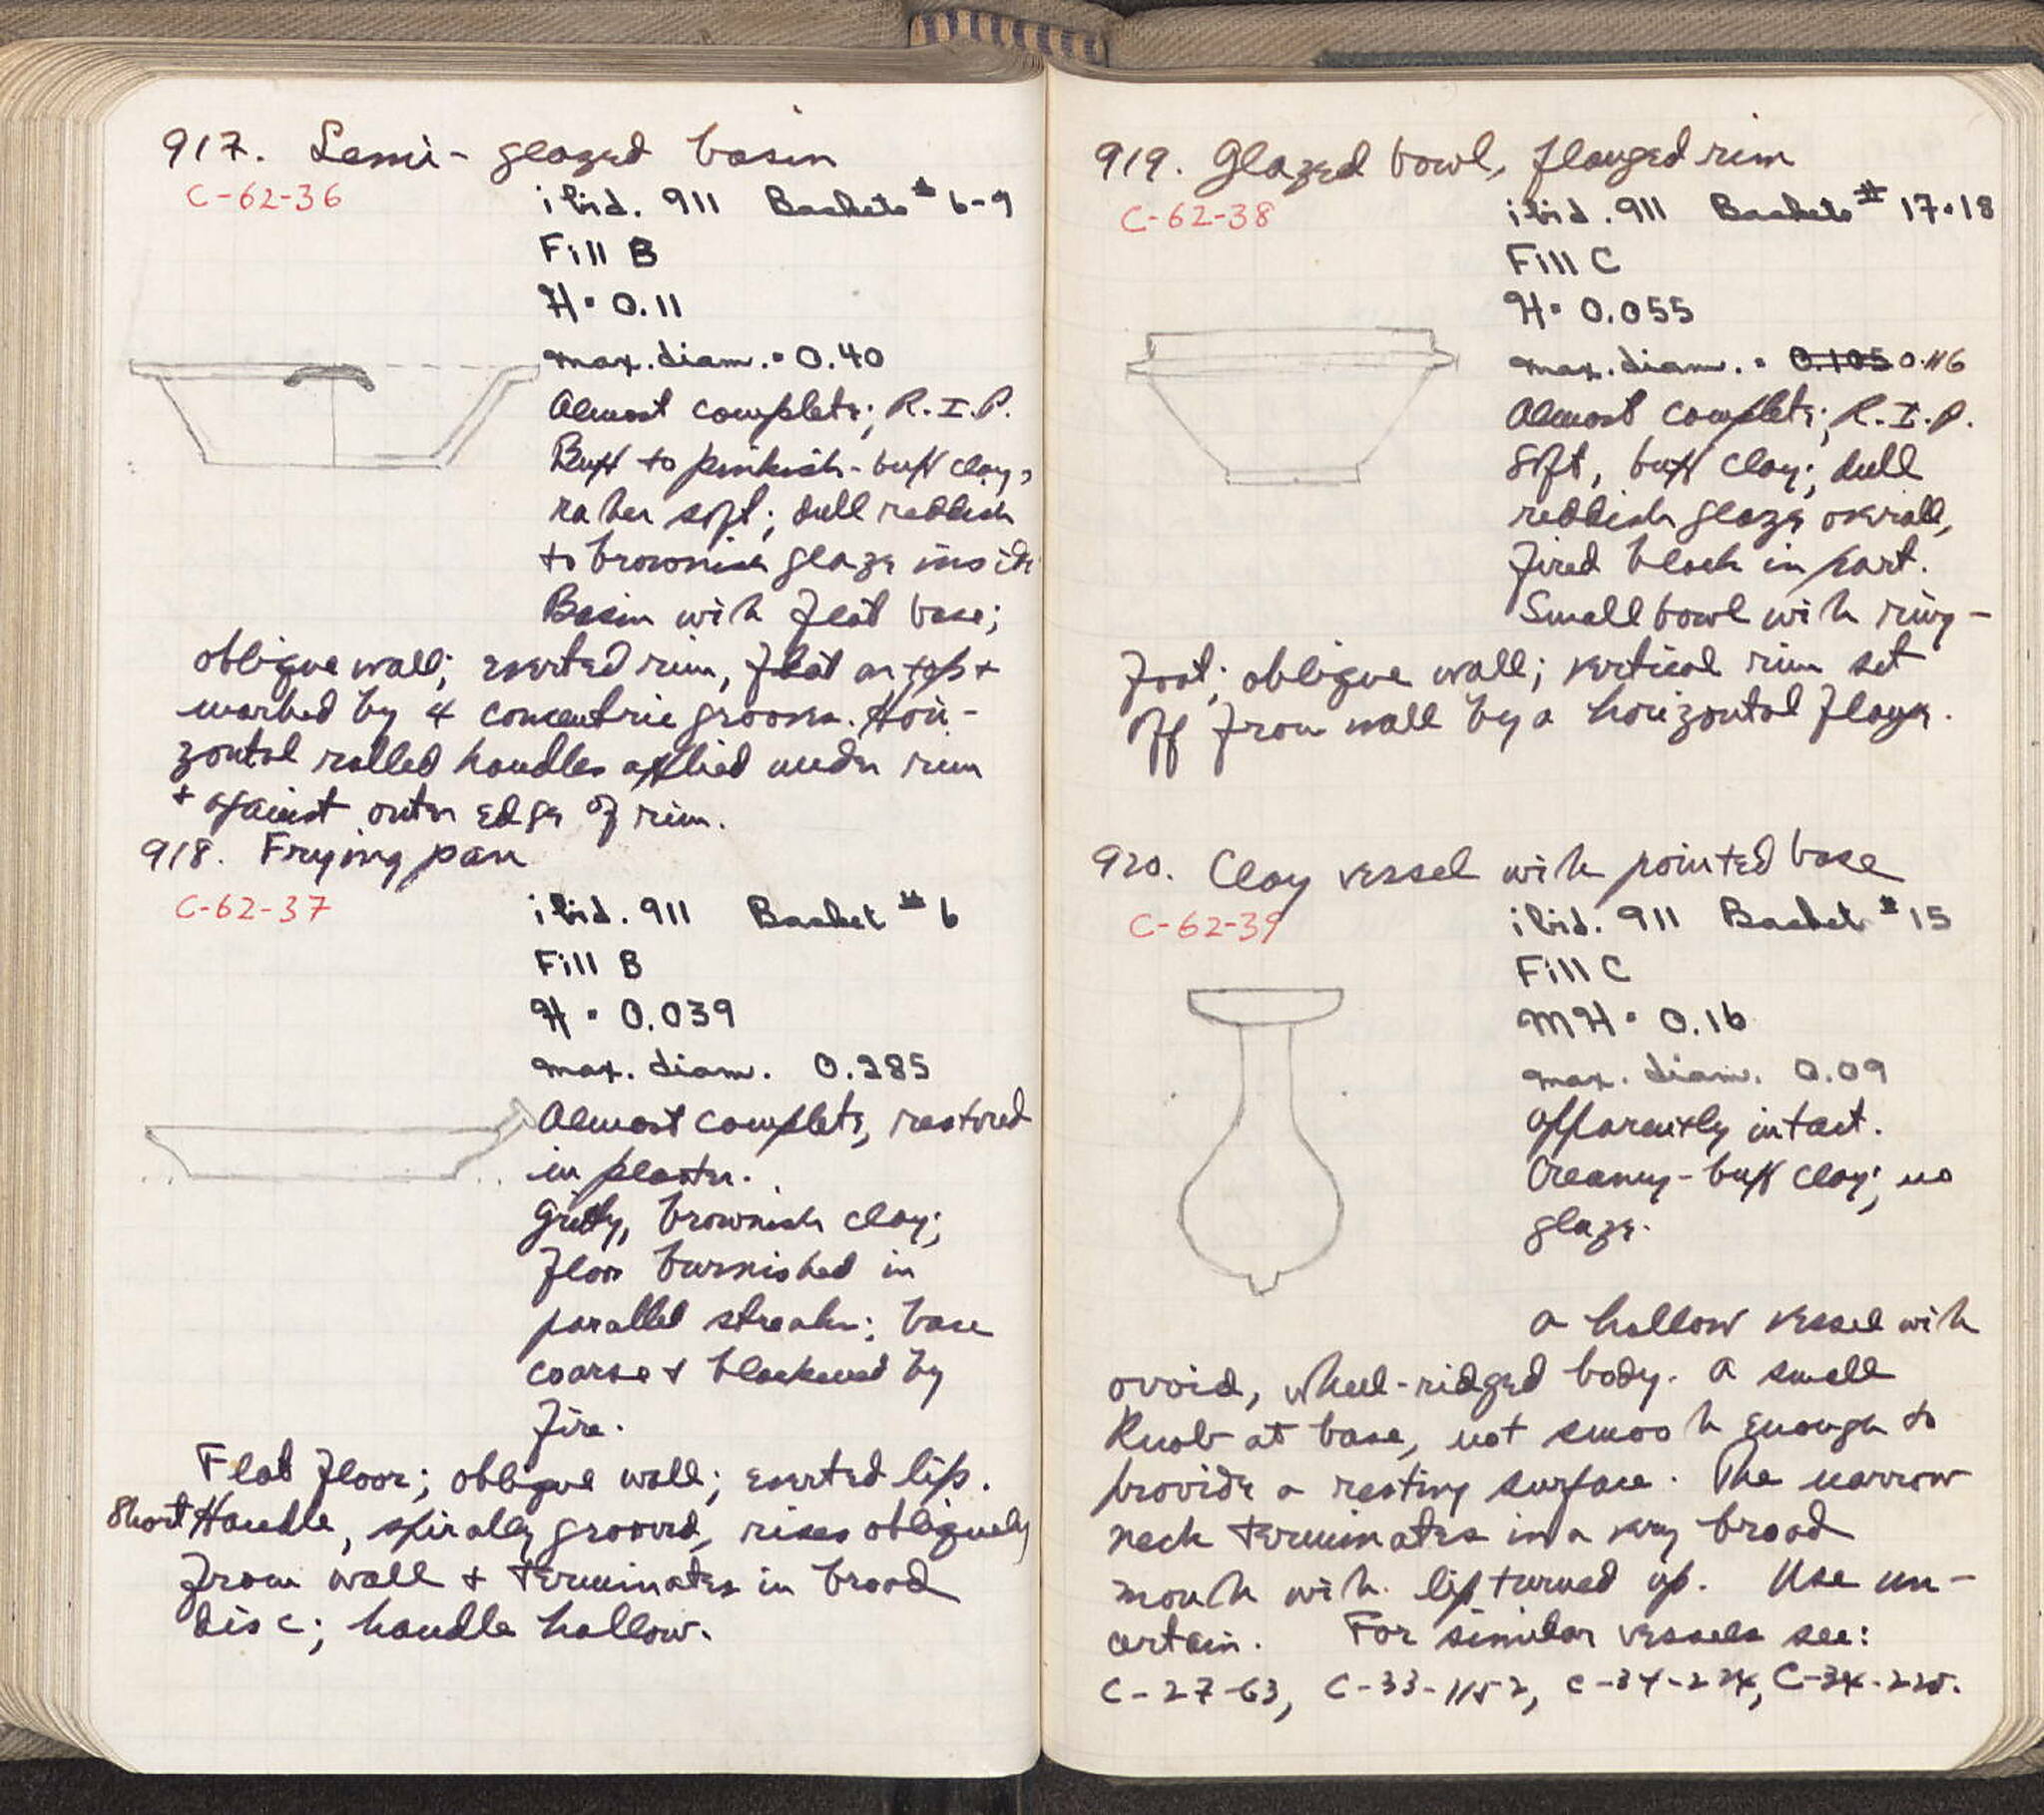 917. Semi-glazed basin
C-62-36
ibid. 911 Baskets # 6-9
Fill B
H = 0.11
max. diam. = 0.40
Almost complete; R.I.P.
Buff to pinkish-buff clay,
rather soft; dull reddish
to brownish glaze inside
Basin with flat base;
oblique wall; everted rim, flat on top +
marked by 4 concentric grooves. Hori-
zontal rolled handles applied under rim
+ against outer edge of rim.
918. Frying pan
C-62-37
ibid. 911 Basket # 6
Fill B
H = 0.039
max. diam. 0.285
Almost complete, restored
in plaster.
Gritty, brownish clay;
floor burnished in
parallel streaks; base
coarse + blackened by
fire.
Flat floor; oblique wall; everted lip.
Short Handle, spirally grooved, rises obliquely
from wall + terminates in broad
disc; handle hollow.
919. Glazed bowl, flanged rim
C-62-38
ibid. 911 Baskets # 17+18
Fill C
H = 0.055
max. diam. = 0.105 0.116
Almost complete; R.I.P.
Soft, buff clay; dull
reddish glaze overall,
fired black in part.
Small bowl with ring-
foot; oblique wall; vertical rim set
off from wall by a horizontal flange.
920. Clay vessel with pointed base
C-62-39
ibid. 911 Basket # 15
Fill C
MH = 0.16
max. diam. 0.09
Apparently intact.
Creamy-buff clay; no
glaze.
A hollow vessel with
ovoid, wheel-ridged body. A small
Knob at base, not smooth enough to
provide a resting surface. The narrow
neck terminates in a very broad
mouth with lip turned up. Use un-
certain. For similar vessels see:
C-27-63, C-33-1152, C-34-224, C-34-225.